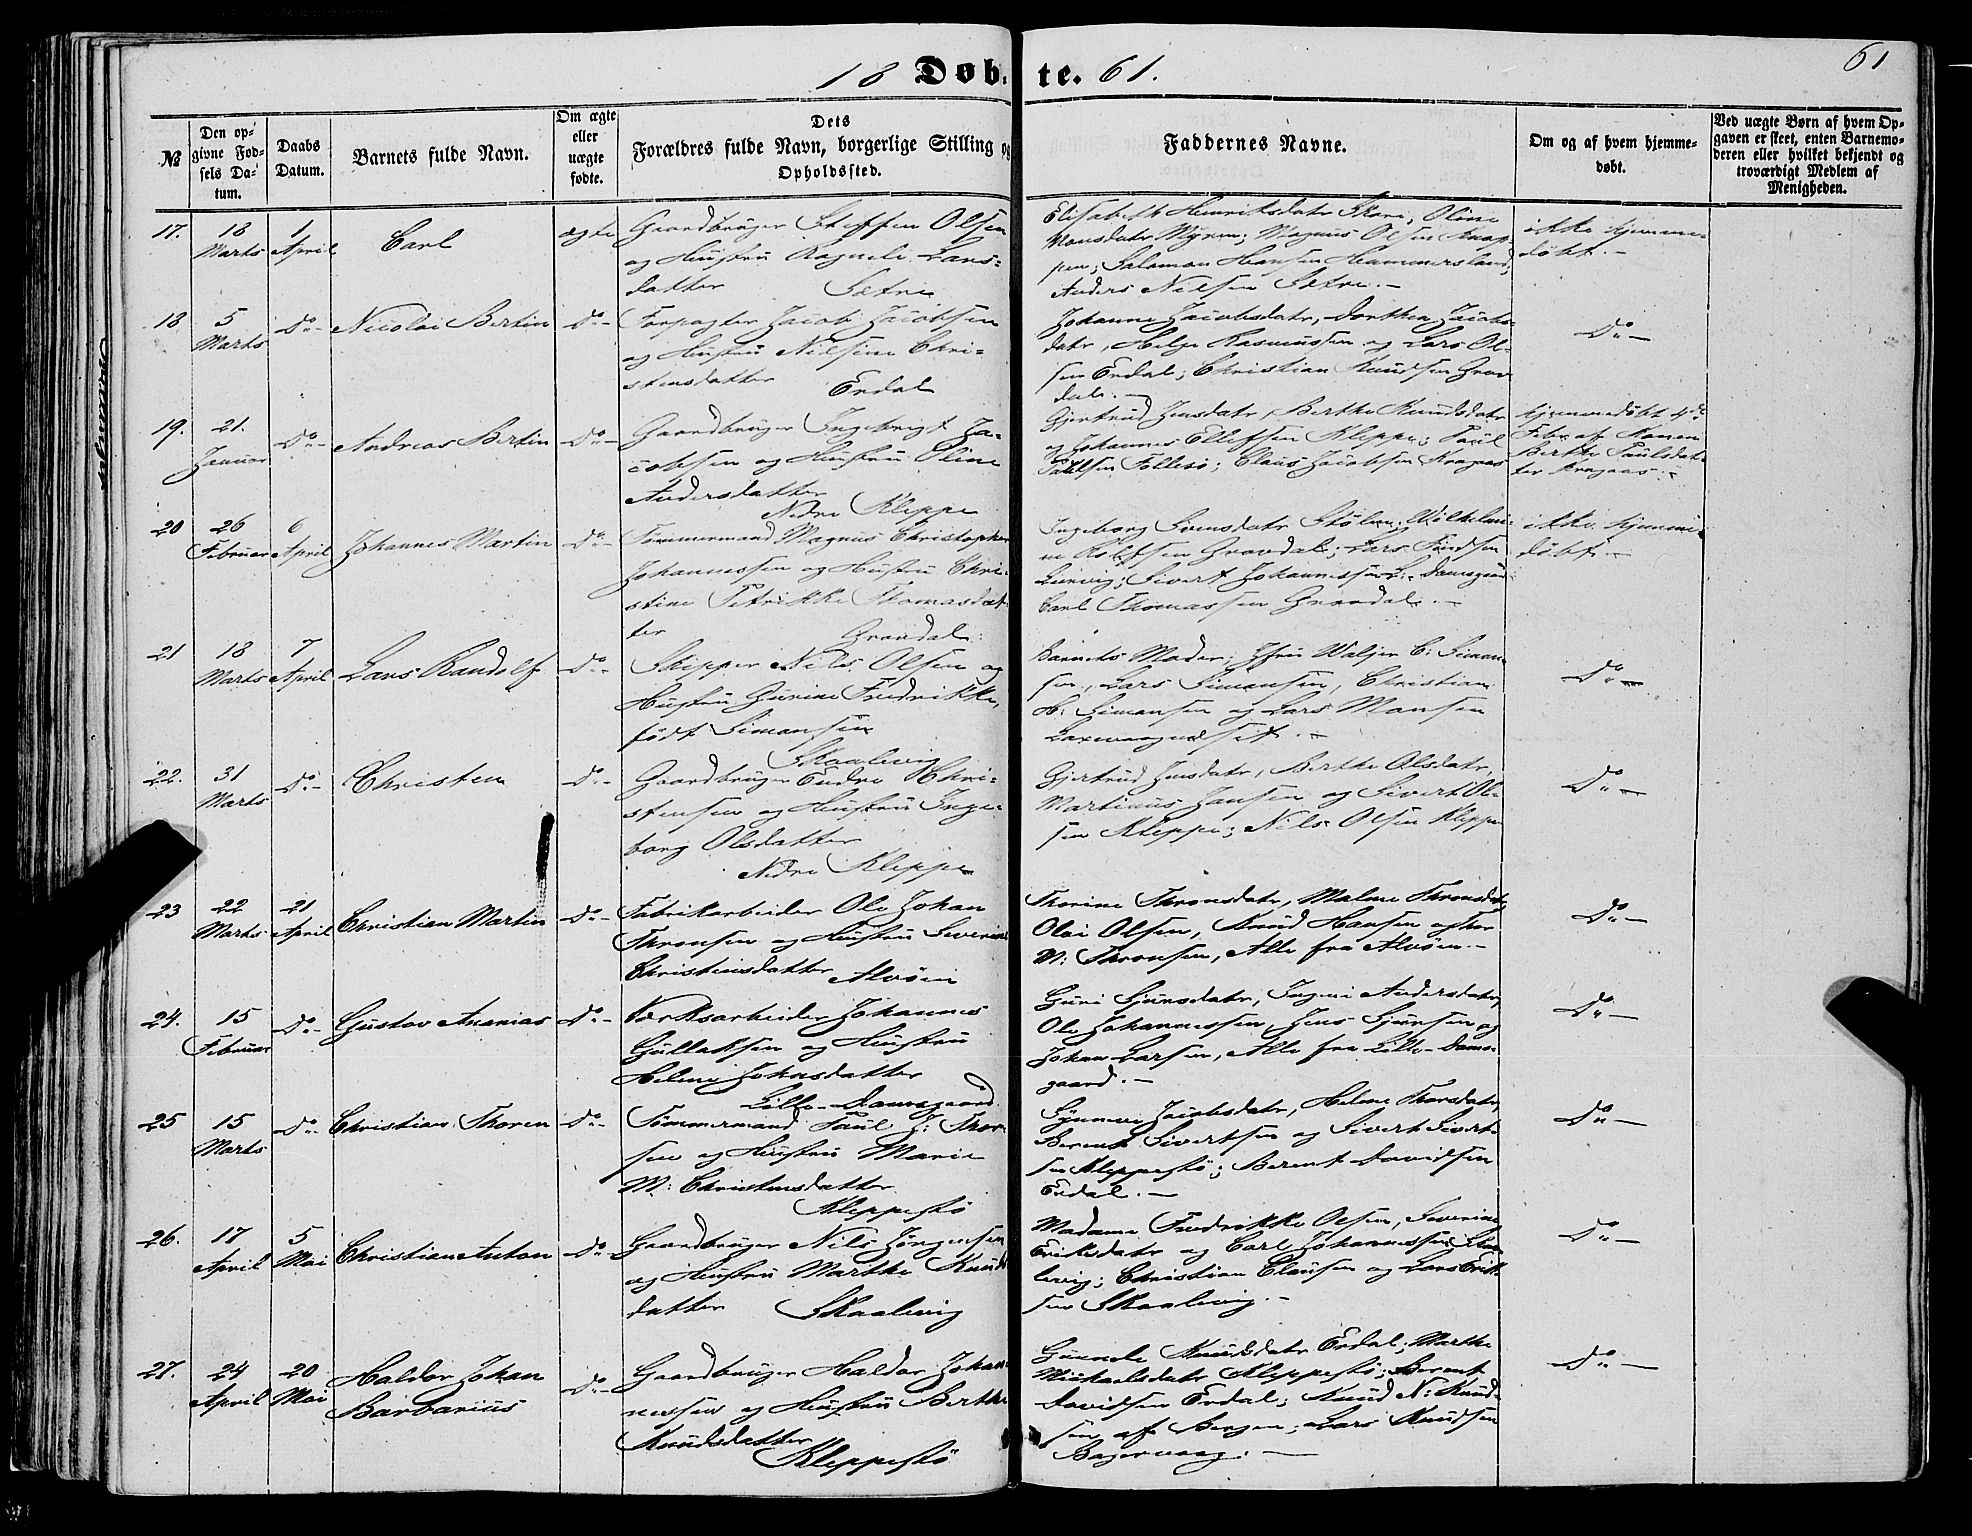 61
18 Døb- te. 61.
№
Den op-
givne Fød-
sels Da-
tum.
Daabs
Datum.
Barnets fulde Navn.
Om ægte
eller
uægte
fødte.
Dets
Forældres fulde Navn, borgerlige Stilling og
Opholdssted.
Faddernes Navne.
Om og af hvem hjemme-
døbt.
Ved uægte Børn af hvem Op-
gaven er skeet, enten Barnemo-
deren eller hvilket bekjendt og
troværdigt Medlem af
Menigheden.
17. 18 Marts 1 April Carl ægte
Gaardbruger Steffen Olsen
og Hustru Ragnele Lars-
datter Sætre
Elisabeth Henriksdatr Skare; Oline
Monsdatr Myren; Magnus Olsen
Salamon Hansen Hammersland;
Anders Nilsen Sætre.-
ikke hjemme-
døbt.-
18 5 Marts Do- Nicolai Bertin Do-
Forpagter Jacob Jacobsen
og Hustru Nilsine Chri-
stensdatter Erdal
Johanne Jacobsdatr, Dorthea Jacobs-
datr, Helge Rasmussen og Lars Ol-
sen Erdal; Christian Knudsen Grav-
dal.-
Do-
19. 21. Januar Do- Andreas Bertin Do-
Gaardbruger Ingebrigt Ja-
cobsen og Hustru Oline
Andersdatter
Nedre Kleppe
Gjertrud Jensdatr, Berthe Knudsdatr
og Johannes Ellefsen Kleppe; Paul
Paulsen Follesø; Claus Jacobsen Kragaas
hjemmedøbt 4de
Febr. af Konen
Berthe Paulsdat-
ter Kragaas.-
20 26 Februar 6 April Johannes Martin Do-
Tømmermand Magnus Christopher
Johannessen og Hustru Chri-
stine Petrikke Thomasdat-
ter Gravdal.
Ingeborg Svensdatr Stølen; Wilhelmi-
ne Rolfsen Gravdal; Lars
Sivert Johannessen L: Damsgaard
Carl Thomassen Gravdal.-
ikke hjemme-
døbt.-
21 18 Marts 7 April Lars Randolf Do-
Skipper Nils Olsen og
Hustru Gurine Fredrikke,
født Simonsen
Skaalevig
Barnets Moder; Jfru Waljer C: Simon-
sen, Lars Simonsen, Christian
H: Simonsen og Lars Monsen
Laxevaagnæset.-
Do-
22. 31 Marts Do- Christen Do-
Gaardbruger Endre Chri-
stensen og Hustru Inge-
borg Olsdatter
Nedre Kleppe
Gjertrud Jensdatr, Berthe Olsdatr,
Martinus Jansen og Sivert Ol-
sen Kleppe; Nils Olsen Kleppe
Do-
23 22 Marts 21 April Christian Martin Do-
Fabrikarbeider Ole Johan
Thronsen og Hustru Severine
Christensdatter Alvøen
Thorine Thronsdatr, Malene Thronsdatr
Olai Olsen, Knud Hansen
M: Thronsen, Alle fra Alvøen.-
Do-
24. 15 Februar Do- Gustav Ananias Do-
Værksarbeider Johannes
Gullaksen og Hustru
Helene Johnsdatter
Lille-Damsgaard
Guri Sjursdatr, Ingeri Andersdatr,
Ole Johannessen, Jens Sjursen og
Johan Larsen, Alle fra Lille-Dams-
gaard.-
Do-
25 15 Marts Do- Christian Thoren Do-
Tømmermand Paul J: Thor-
sen og Hustru Marie
M: Christensdatter
Kleppestø
Synneve Jacobsdatr, Helene Thorsdatr,
Berent Sivertsen og Sivert Sivert-
sen Kleppestø; Berent Davidsen
Erdal.-
Do-
26. 17 April 5 Mai Christian Anton Do-
Gaardbruger Nils Jørgensen
og Hustru Marthe Knuds-
datter Skaalevig
Madame Fredrikke Olsen, Severine
Eriksdatr og Carl Johannessen Skaa-
levig; Christian Clausen og Lars Erik-
sen Skaalevig.-
Do-
27. 24 April 20 Mai Haldor Johan
Barbarius Do-
Gaardbruger Haldor Johan-
nessen og Hustru Berthe
Knudsdatter
Kleppestø
Gunnele Knudsdatr Erdal; Marthe
Mickaelsdatr Kleppestø; Berent
Davidsen Erdal; Knud N: Knud-
sen af Bergen; Lars Knudsen
Bagervaag.-
Do-